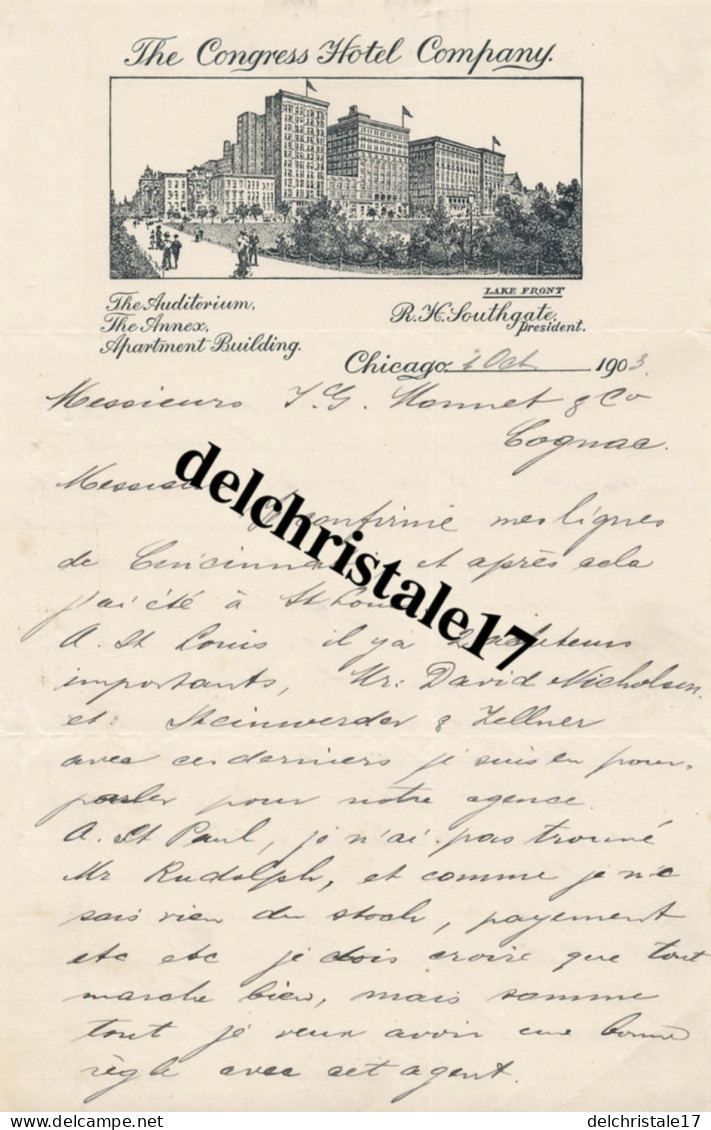 The Congress Hotel Company.
LAKE FRONT
The Auditorium,
The Annex,
Apartment Building.
R. H. Southgate,
President.
Chicago 1 Oct 1903
Messieurs J. G. Monnet & Co
Cognac.
confirme mes lignes
de et après cela
j'ai été à St Louis
A St Louis il y a 2
importants, Mr: David Nicholson,
et: Steinwender & Zellner
avec ces derniers je suis en pour-
parler pour notre agence.
A. St Paul, je n'ai pas trouvé
Mr Rudolph, et comme je ne
sais rien du stock, payement
etc etc je dois croire que tout
marche bien, mais somme
tout je veux avoir une bonne
règle avec cet agent.
delchristale17
delcampe.net
delchristale17